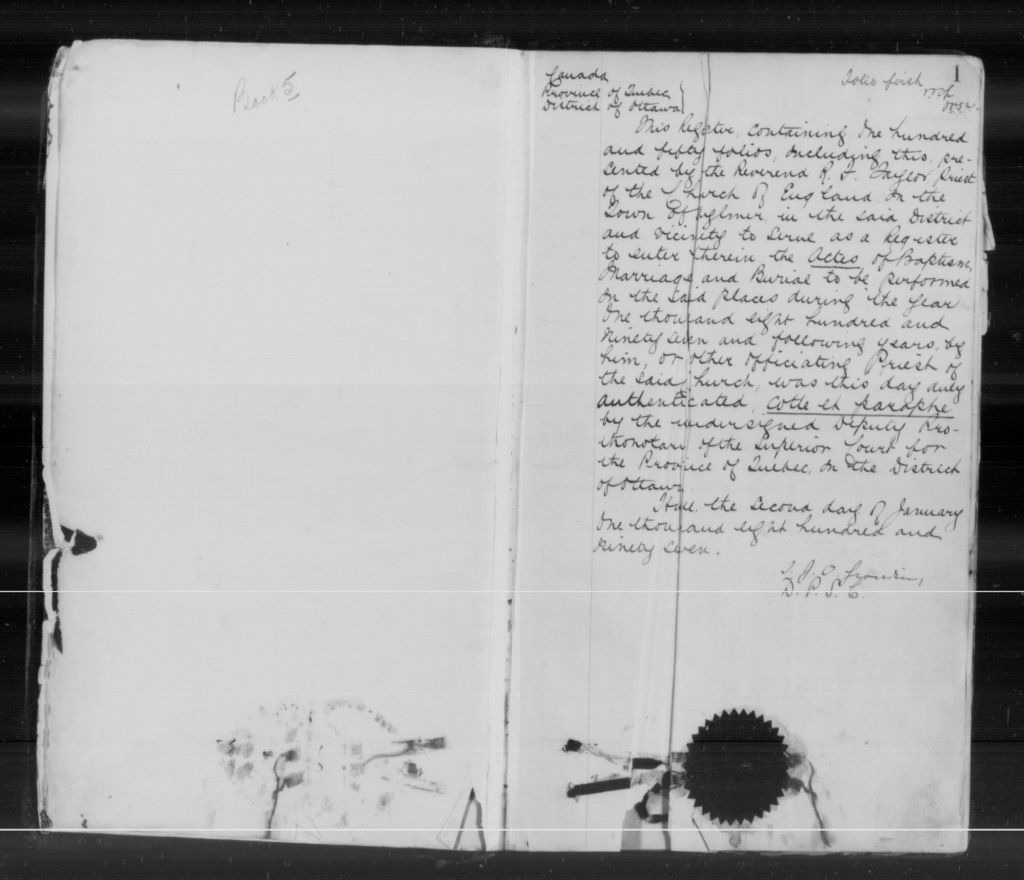 Book 5
1
Folio first
Canada
Province of Quebec
District of Ottawa
This Register, containing One hundred
and fifty folios, including this, pre-
sented by the Reverend R. F. Taylor, Priest
of the Church of England in the
Town of Aylmer, in the said District
and vicinity to serve as a Register
to enter therein the Actes of Baptism,
Marriage and Burial to be performed
in the said places during the year
One thousand eight hundred and
Ninety seven and following years, by
him, or other officiating Priest of
the said Church, was this day duly
authenticated, Cotté et paraphé
by the undersigned Deputy Pro-
thonotary of the Superior Court for
the Province of Quebec, in the District
of Ottawa
Hull, the second day of January
One thousand eight hundred and
ninety seven.
D. P. S. C.